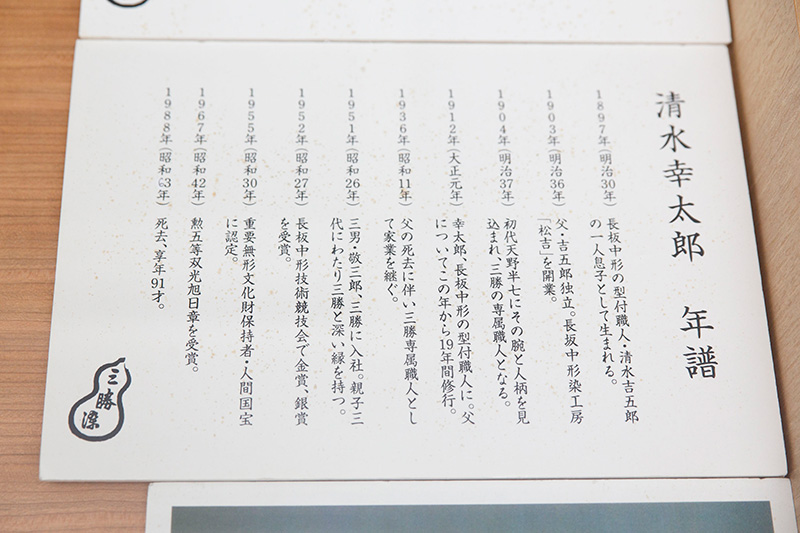 清水幸太郎　年譜
1897年(明治30年)　長板中形の型付職人・清水吉五郎
の一人息子として生まれる。
1903年(明治36年)　父・吉五郎独立。長板中形染工房
「松吉」を開業。
1904年(明治37年)　初代天野半七にその腕と人柄を見
込まれ、三勝の専属職人となる。
1912年(大正元年)　幸太郎、長板中形の型付職人に。父
についてこの年から19年間修行。
1936年(昭和11年)　父の死去に伴い三勝専属職人とし
て家業を継ぐ。
1951年(昭和26年)　三男・敬三郎、三勝に入社。親子三
代にわたり三勝と深い縁を持つ。
1952年(昭和27年)　長板中形技術競技会で金賞、銀賞
を受賞。
1955年(昭和30年)　重要無形文化財保持者・人間国宝
に認定。
1967年(昭和42年)　勲五等双光旭日章を受賞。
1988年(昭和63年)　死去、享年91才。
三勝染